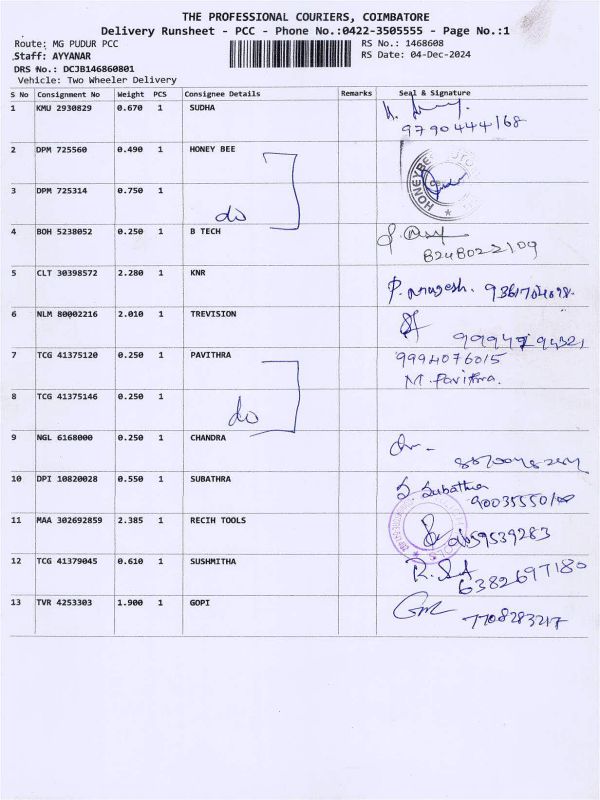 THE PROFESSIONAL COURIERS, COIMBATORE
Delivery Runsheet - PCC - Phone No.:0422-3505555 - Page No.:1
Route: MG PUDUR PCC
RS No.: 1468608
Staff: AYYANAR
RS Date: 04-Dec-2024
DRS No.: DCJB146860801
Vehicle: Two Wheeler Delivery
S No Consignment No Weight PCS Consignee Details Remarks Seal & Signature
1 KMU 2930829 0.670 1 SUDHA
9790444168
2 DPM 725560 0.490 1 HONEY BEE
HONEYBEE
3 DPM 725314 0.750 1
do
4 BOH 5238052 0.250 1 B TECH
8248022109
5 CLT 30398572 2.280 1 KNR
P. Murugesh.
6 NLM 80002216 2.010 1 TREVISION
7 TCG 41375120 0.250 1 PAVITHRA
9994076015
M. Pavithra.
8 TCG 41375146 0.250 1
do
9 NGL 6168000 0.250 1 CHANDRA
10 DPI 10820028 0.550 1 SUBATHRA
S. Subathra
11 MAA 302692859 2.385 1 RECIH TOOLS
12 TCG 41379045 0.610 1 SUSHMITHA
6382697180
13 TVR 4253303 1.900 1 GOPI
7708283217